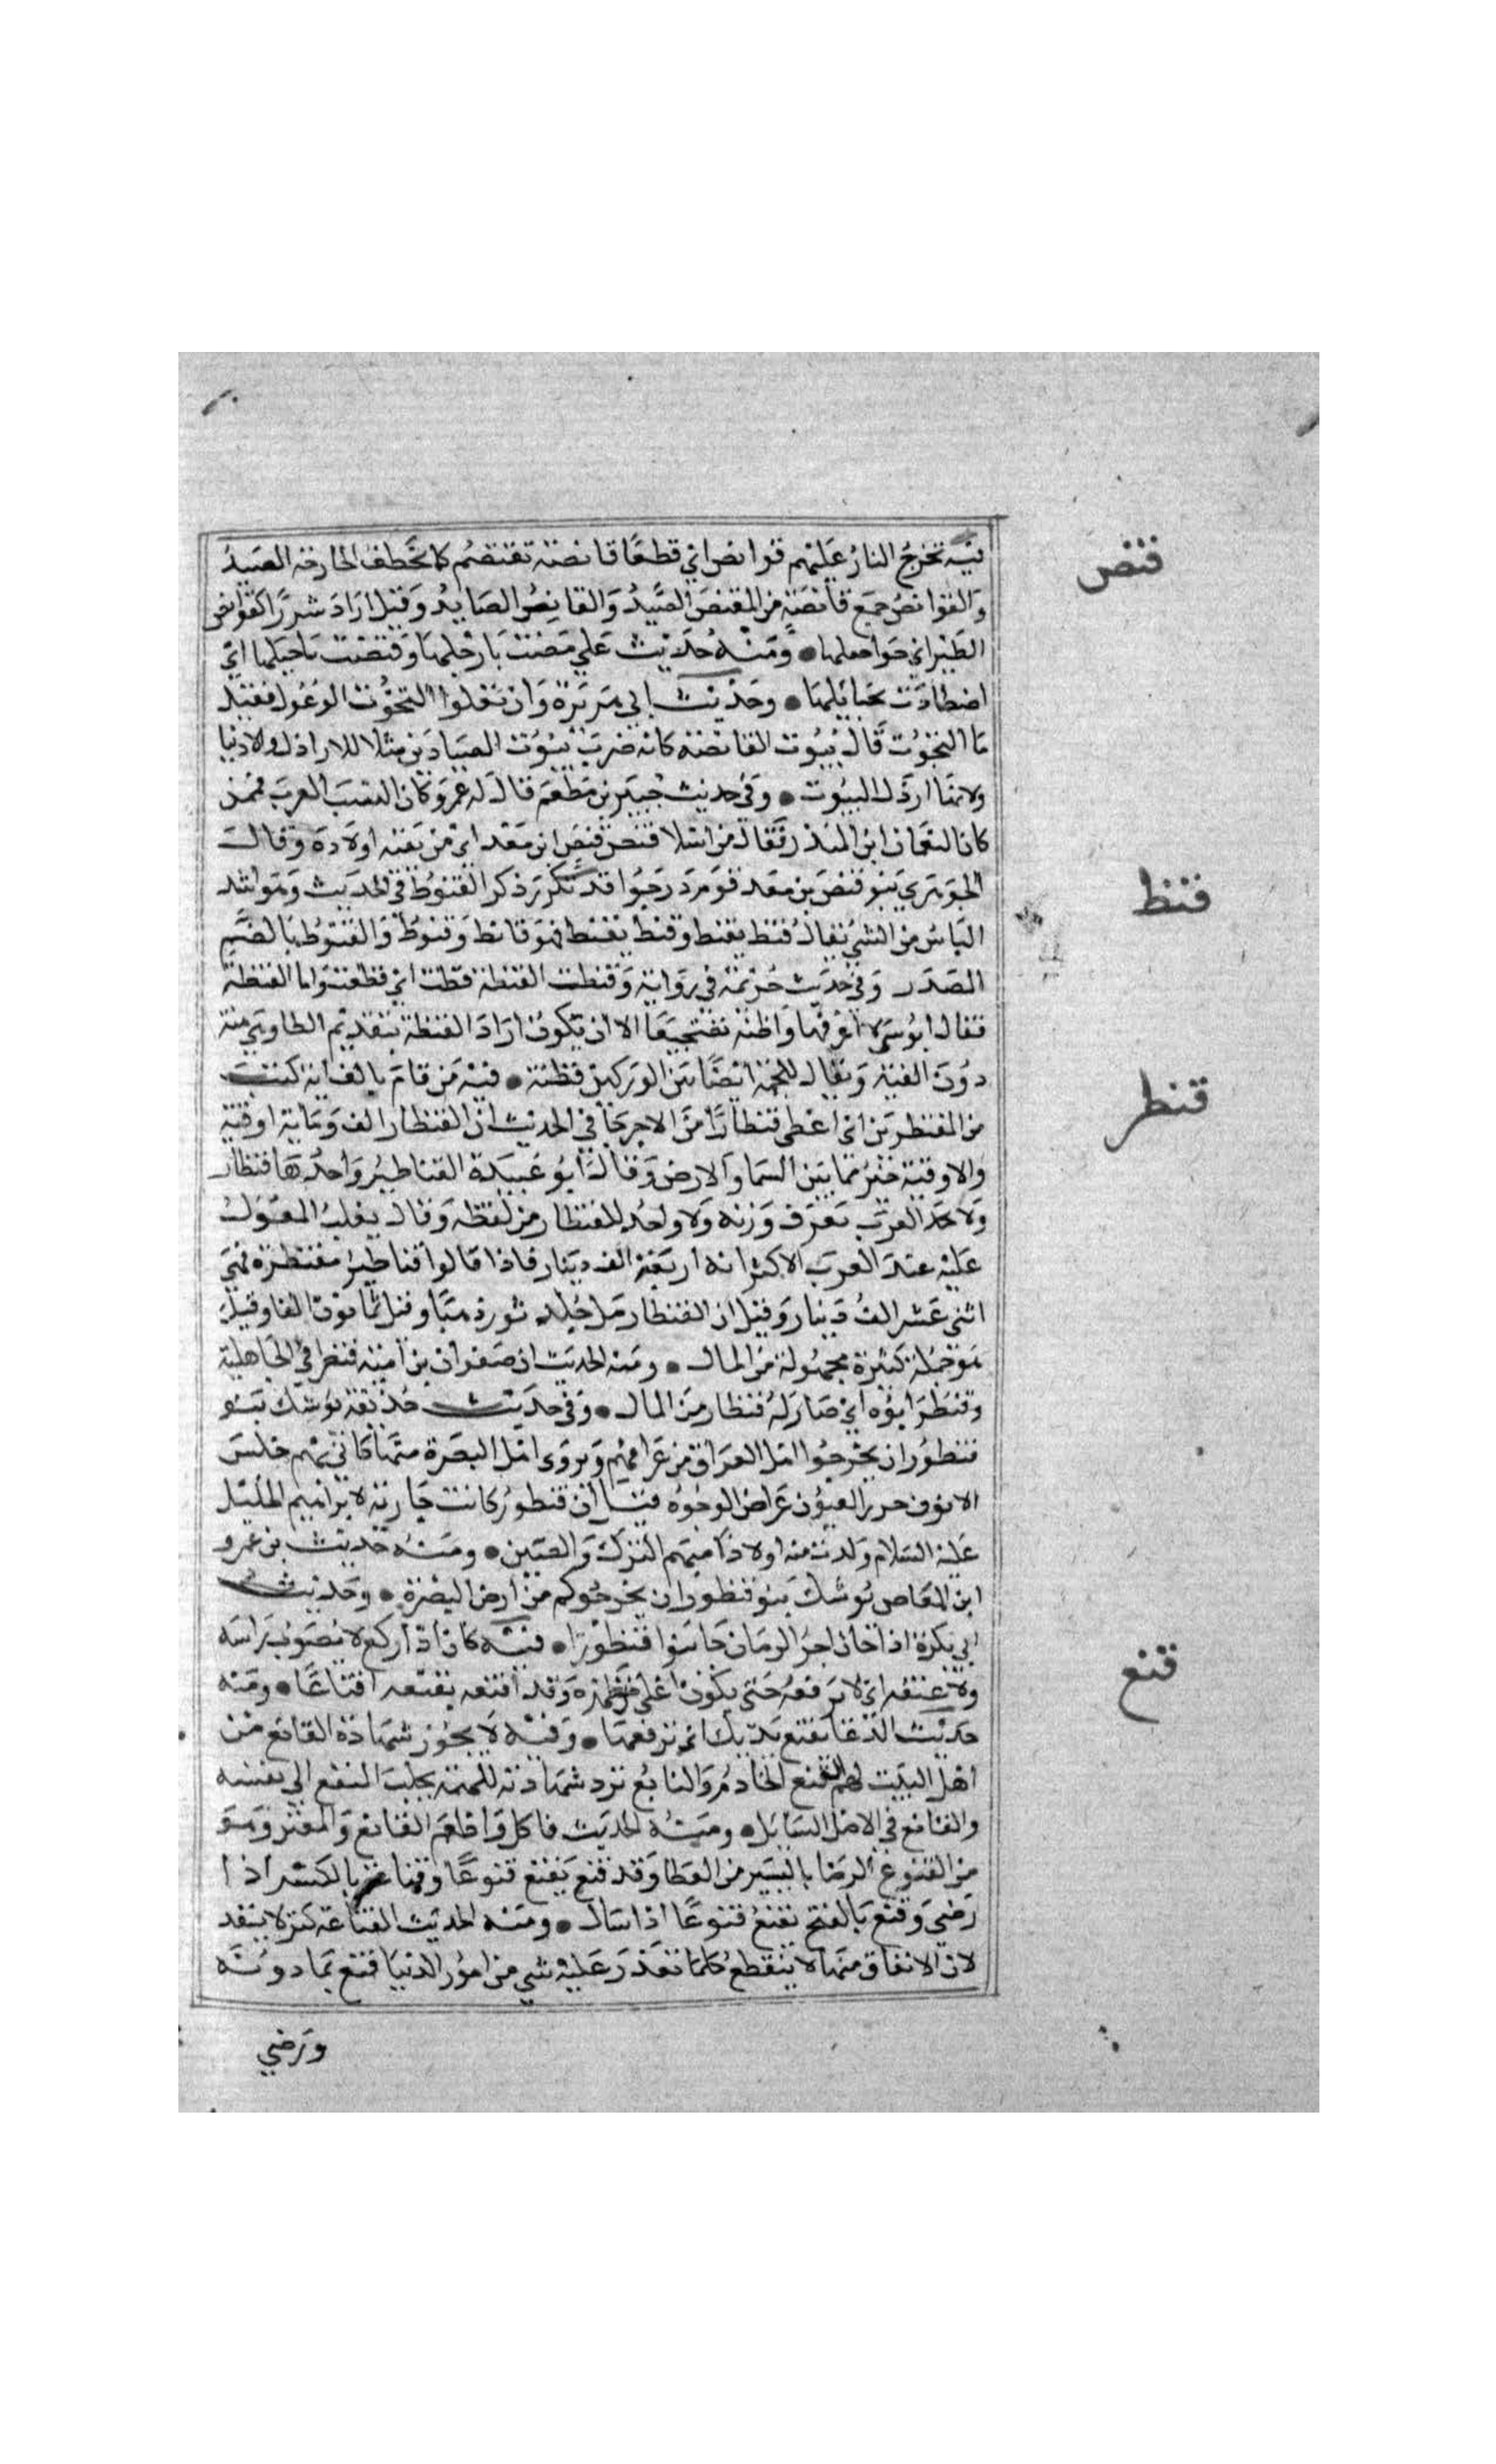 قنص
فيه تخرج النار عليهم قوانص اي قطعا قانصة تقنصهم كما تخطف الجارحة الصيد
والقوانص جمع قانصة من القنص الصيد والقانص الصايد وقيل اراد شررا كقوانص
الطير اي حواصلها ومنه حديث علي قمصت بارجلها وقنصت باحبلها اي
اصطادت بحبائلها وحديث ابي هريرة وان تعلوا التحوت الوعول فقيل
ما التحوت قال بيوت القانصة كانه ضرب بيوت الصيادين مثلا للاراذل والادنيا
ولانها ارذل البيوت وفي حديث جبير بن مطعم قال له عمر وكان انسب العرب ممن
كان النعمان ابن المنذر فقال من اشلا قنص قنص ابن معد اي من بقية اولاده وقال
الجوهري بنو قنص بن معد قوم درجوا قد تكرر ذكر القنوط في الحديث وهو اشد
قنط
الياس من الشي يقال قنط يقنط وقنط يقنط فهو قانط وقنوط والقنوط بالضم
المصدر وفي حديث خزيمة في رواية وقنطت القنطة قطت اي قطعت واما القنطة
فقال ابو موسى لا اعرفها واظنه تصحيفا الا ان يكون اراد القطنة بتقديم الطا وهي هنة
دون القبة ويقال للحمة ايضا بين الوركين قطنة فيه من قام بالف اية كتب
قنطر
من المقنطرين اي اعطي قنطارا من الاجر جا في الحديث ان القنطار الف وماية اوقية
والاوقية خير مما بين السما والارض وقال ابو عبيدة القناطير واحدها قنطار
ولا تجد العرب تعرف وزنه ولا واحد للقنطار من لفظه وقال ثعلب المعول
عليه عند العرب الاكثر انه اربعة الف دينار فاذا قالوا قناطير مقنطرة فهي
اثني عشر الف دينار وقيل ان القنطار مل جلد ثور ذهبا وقيل ثمانون الفا وقيل
هو جملة كثيرة مجهولة من المال ومنه الحديث ان صفوان بن امية قنطر في الجاهلية
وقنطر ابوه اي صار له قنطار من المال وفي حديث حذيفة يوشك بنو
قنطور ان يخرجوا اهل العراق من عراقهم ويروى اهل البصرة منها كاني بهم خنس
الانوف خزر العيون عراض الوجوه قيل ان قنطور كانت جارية لابراهيم الخليل
عليه السلام ولدت منه اولادا منهم الترك والصين ومنه حديث بن عمرو
ابن العاص يوشك بنو قنطور ان يخرجوكم من ارض البصرة وحديث
ابي بكرة اذا كان اخر الزمان جا بنوا قنطورا فيه كان اذا ركع لا يصوب راسه
قنع
ولا يقنعه اي لا يرفعه حتى يكون اعلى من ظهره وقد اقنعه يقنعه اقناعا ومنه
حديث الدعا تقنع يديك اي ترفعهما وفيه لا يجوز شهادة القانع من
اهل البيت لهم القانع الخادم والتابع ترد شهادته للتهمة بجلب النفع الى نفسه
والقانع في الاصل السايل ومنه الحديث فاكل واطعم القانع والمعتر وهو
من القنوع الرضا باليسير من العطا وقد قنع يقنع قنوعا وقناعة بالكسر اذا
رضي وقنع بالفتح يقنع قنوعا اذا سال ومنه الحديث القناعة كنز لا ينفد
لان الانفاق منها لا ينقطع كلما تعذر عليه شي من امور الدنيا قنع بما دونه
ورضي